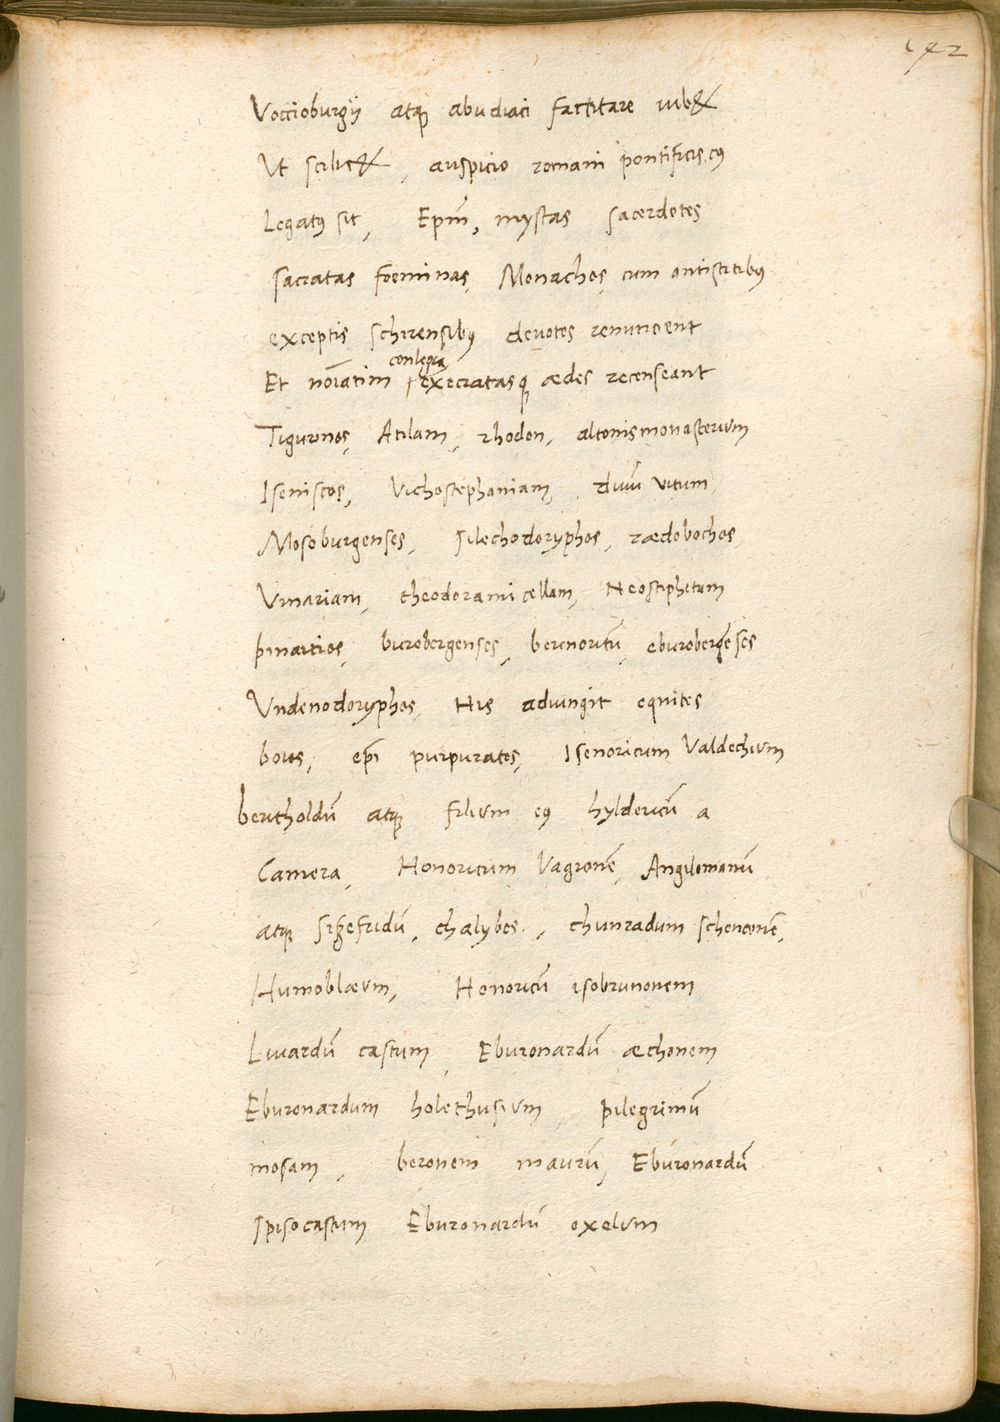 142
Voccioburgij atq abudiaci factitare iub&
Ut scilic&, auspicio romani pontificis, cuius
Legatus sit, Epm̄, mystas sacerdotes
sacratas foeminas, Monachos, cum antistitibus
exceptis schirensibus devotos renuncient
conlegia
Et noīatim execratasq ædes recenseant
Tiguronos, Atilam, rhodon, altonismonasterium
Iseniscos, Vichostephaniam, diuū vitum
Mosoburgenses, silechodoryphos, rædobochos
Vinariam, theodoramicellam, Neostiphetum
burobergenses, berinoritū, eburobergēses
Undenodoryphos, His adiungit equites
boios, epī purpuratos, Isenoricum Valdechium
bertholdū atq filium eius hyldericū a
Camera, Honoricum Vagionē, Angilomanū
atq sigefridū, chalybes, chunradum schenconē,
Humoblæum, Honoricū isobrunonem
Liuardū castum, Eburonardū æchonem
Eburonardum holethusium, pilegrimū
mosam, beronem maurū, Eburonardū
Spisocastum Eburonardū oxelum